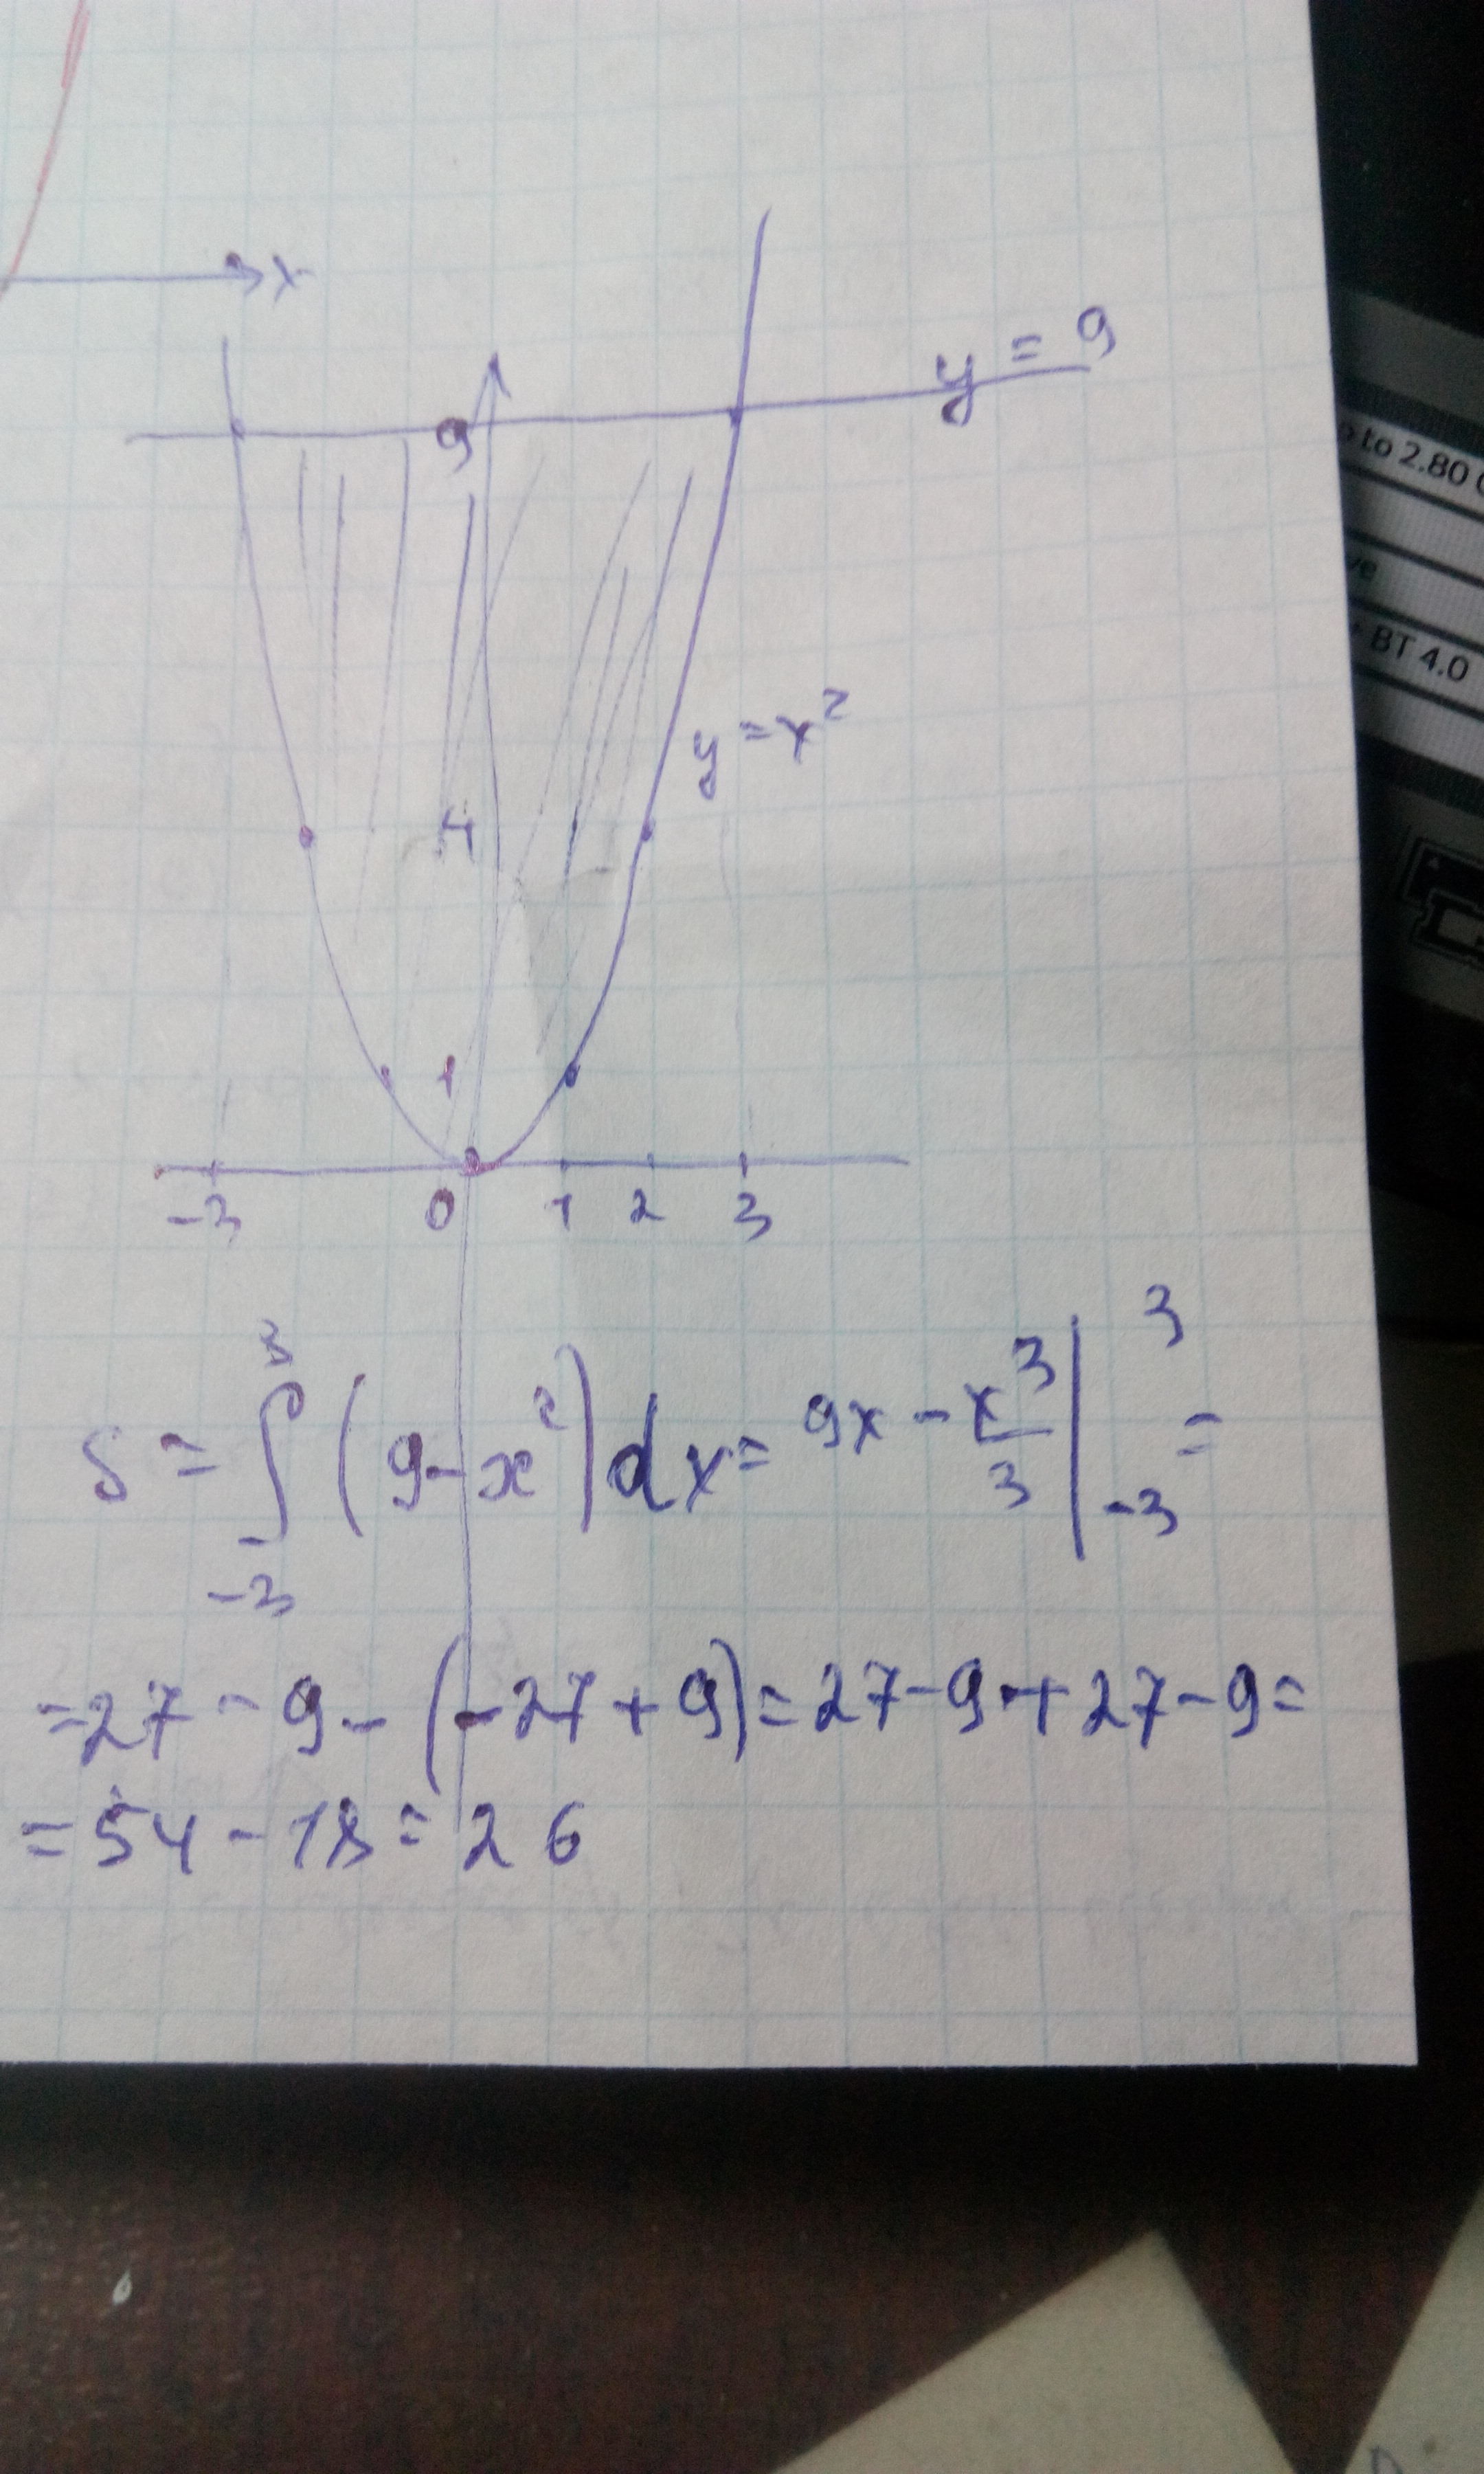 x
y = 9
9
y = x²
4
1
-3 0 1 2 3
S = ∫₋₃³ (9 - x²) dx = 9x - x³/3 |₋₃³ =
= 27 - 9 - (-27 + 9) = 27 - 9 + 27 - 9 =
= 54 - 18 = 26
to 2.80
BT 4.0